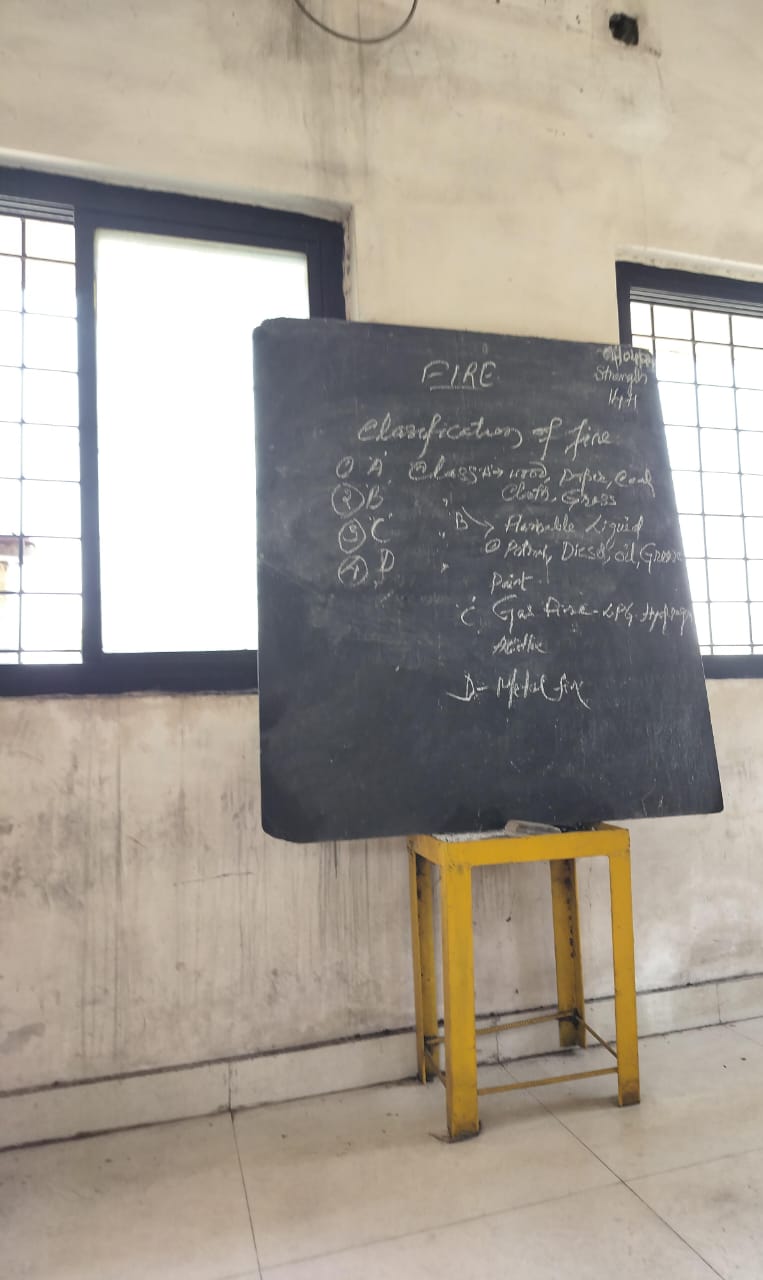 FIRE
Strength
Classification of fire
① A Class A → wood, Paper, Coal
Cloth, Grass
② B " B → Flamable Liquid
③ C " Petrol, Diesel, oil, Grease
④ D " Paint
C Gas Fire - LPG
D - Metal fire